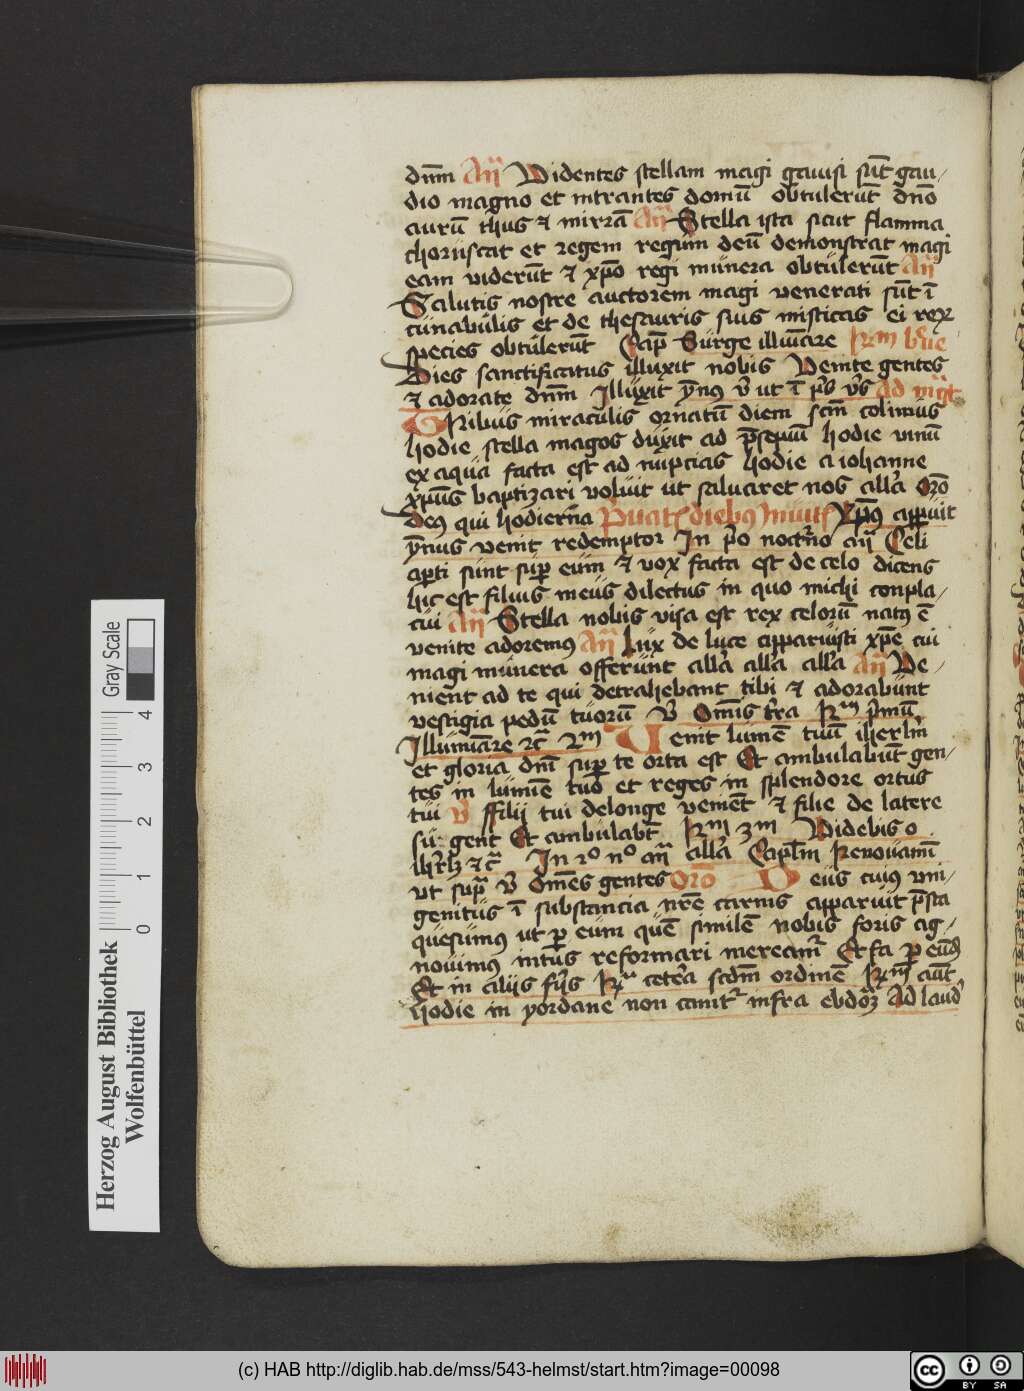 dn̄m Añ Videntes stellam magi gauisi sūt gau-
dio magno et intrantes domū obtulerūt dn̄o
aurū thus ⁊ mirrā Añ Stella ista sicut flamma
choruscat et regem regum deū demonstrat magi
eam viderūt ⁊ xp̄o regi munera obtulerūt Añ
Salutis nostre auctorem magi venerati sūt ī
cunabulis et de thesauris suis misticas ei rex
species obtulerūt Cap̄ Surge illuīare
Dies sanctificatus illuxit nobis Venite gentes
⁊ adorate dn̄m Illuxit ẏn9 v̄ ut ī p̄s v̄s Ad mg̅t
Tribus miraculis ornatū diem scm̄ colimus
hodie stella magos duxit ad p̄sepiū hodie vinū
ex aqua facta est ad nupcias hodie a iohanne
xp̄us baptizari voluit ut saluaret nos all̄a Or̄o
De9 qui hodierna Priuat diebus Inuit Xp̄us apparuit
ẏnus venit redemptor In p̄o noct̄no añ Celi
ap̄ti sunt sup̄ eum ⁊ vox facta est de celo dicens
hic est filius meus dilectus in quo michi conpla-
cui Añ Stella nobis visa est rex celorū nat9 ē
venite adorem9 Añ Lux de luce apparuisti xp̄e cui
magi munera offerunt all̄a all̄a all̄a Añ Ve-
nient ad te qui detrahebant tibi ⁊ adorabunt
vestigia pedū tuorū V̄ Om̄is t̄ra R̄m p̄mū
Illuminare ⁊c̄ Rm Venit lumē tuū iherl̄m
et gloria dn̄i sup̄ te orta est Et ambulabūt gen-
tes in lumīe tuo et reges in splendore ortus
tui V̄ ffilij tui delonge venient ⁊ filie de latere
sur gent Et ambulabt̄ R̄m 3m Videbis o
ihr̄lz ⁊c̄ In 2o no añ all̄a Capl̄m Renouamī
ut sup̄ V̄ Om̄es gentes Or̄o Deus cui9 vni-
genitus ī substancia nr̄e carnis apparuit p̄sta
quesum9 ut p̄ eum quē similē nobis foris ag-
nouim9 intus reformari mereamr̄ Et fa p̄ eūd
Et in alijs fijs R̄a cetera scdm̄ ordinē R̄m aūt
hodie in yordane non cantr̄ infra ebdoz̄ Ad laud
Herzog August Bibliothek
Wolfenbüttel
0 1 2 3 4
Gray Scale
(c) HAB http://diglib.hab.de/mss/543-helmst/start.htm?image=00098
cc BY SA